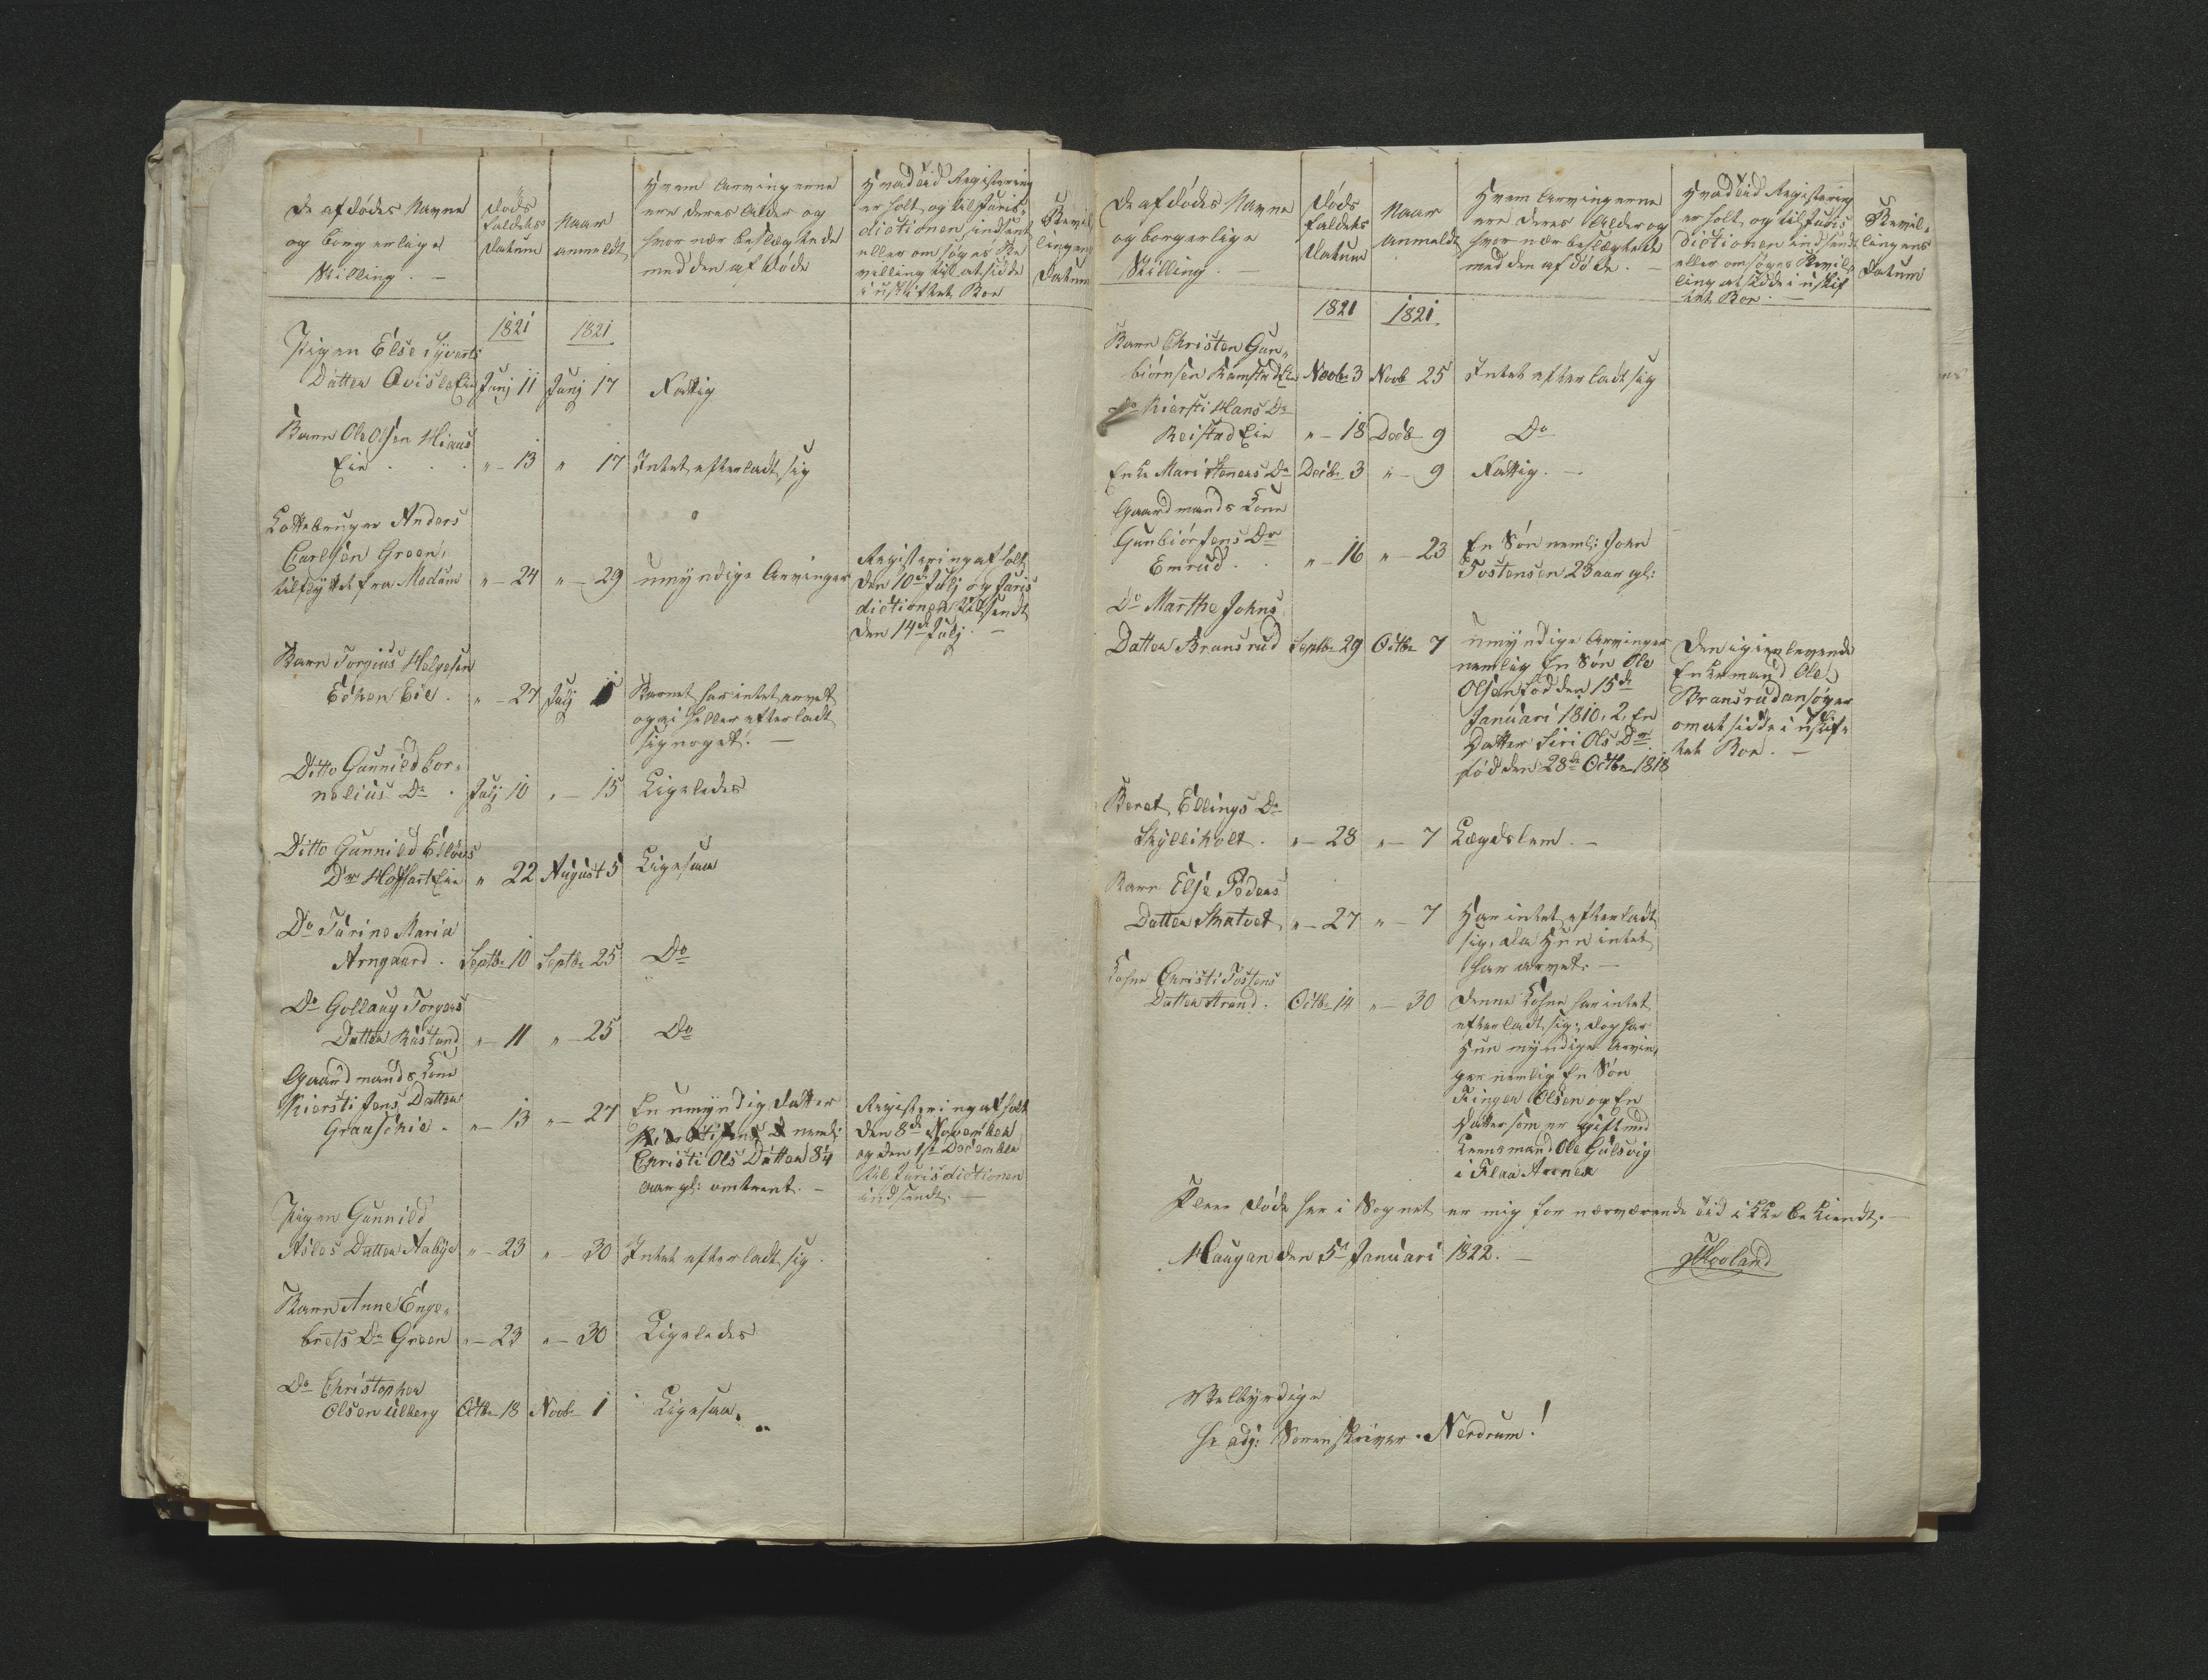 De afdødes Navne
og borgerlige
Stilling. —
Døds
faldets
Datum
Naar
anmeldt
Hvem Arvingerne
ere deres Alder og
hvor nær beslægtede
med den afdøde
Hvad tid Registering
er holt og til Juris-
dictionen indsent
eller om søges Be
villing til at sidde
i uskiftet Boe
Bevil
lingens
Datum
1821
1821
Pigen Else Syverts
Datter Qvisle Eie Junj 11 Junj 17 Fattig
Barn Ole Olsen Hiaas
Eie . . . " — 13 " 17 Intet efterladt sig
Lottebruger Anders
Carlsen Green,
tilflyttet fra Modum " — 24 " — 29 umyndige Arvinger
Registering afholt
den 10de Julj og Juris
dictionen tilsendt
den 14de Julj. —
Barn Torgius Helgesen
Eie . " — 27 Julj Barnet har intet arvet
og ei heller efterladt
sig noget. —
Ditto Gunnild Cor-
nelius Dr . Julj 10 " — 15 Ligeledes
Ditto Gunnild
Dr Eie " 22 August 5 Ligesaa
Do Turine Maria
Arngaard . Septbr 10 Septbr 25 Do
Do Gollaug Torgers
Datter Rustand " — 11 " — 25 Do
Gaardmands Kone
Kiersti Jens Datter
. " — 13 " — 27 En umyndig Datter
neml:
Christi Ols Datter 8¼
aar gl: omtrent. —
Registering afholt
den 8de November
og den 1ste December
til Jurisdictionen
indsendt. —
Pigen Gunnild
Asles Datter Aabye " — 23 " — 30 Intet efterladt sig.
Barn Anne Enge-
brets Dr Green " — 23 " — 30 Ligeledes
Do Christopher
Olsen Ulberg Octbr 18 Novbr 1 Ligesaa.
De afdødes Navne
og borgerlige
Stilling. —
Døds
faldets
Datum
Naar
anmeldt
Hvem Arvingerne
ere deres Alder og
hvor nær beslægtede
med den afdøde. —
Hvad tid Registering
er holt og til Juris
dictionen indsendt
eller om søges Bevil-
ling at sidde i uskif
tet Boe. —
Bevil-
lingens
Datum
1821
1821
Barn Christen Gun-
biørnsen Ramstad Eie Novbr 3 Novb 25 Intet efterladt sig
Do Kiersti Hans Dr
Reistad Eie " — 18 Decbr 9 Do
Enke Mari Steners Dr Decbr 3 " — 9 Fattig. —
Gaardmands Kone
Gunbiør Jens Dr
Emrud . . " — 16 " — 23 En Søn neml: John
Tostensen 23 aar gl:
Do Marthe Johns
Datter Bransrud Septbr 29 Octbr 7 umyndige Arvinger
nemlig En Søn Ole
Olsen født den 15de
Januari 1810, 2, En
Datter Siri Ols Dr
født den 28de Octbr 1818
Den igienlevende
Enkemand Ole
Bransrud ansøger
om at sidde i uskif-
tet Boe. —
Beret Ellings Dr
Skylliholt . " — 28 " — 7 Lægdslem. —
Barn Else Peders
Datter Skatvet " — 27 " — 7 Har intet efterladt
sig, da Hun intet
har arvet. —
Kohne Christi Tostens
Datter Strand . Octbr 14 " — 30 Denne Kohne har intet
efterladt sig, dog har
Hun myndige Arvin-
ger nemlig En Søn
Olsen og En
Datter som er gift med
Leensmand Ole Gulsvig
i Flaa Annex
Flere døde her i Sognet er mig for nærværende tid ikke bekiendt. —
Haugan den 5te Januari 1822. — Hooland
Velbyrdige
Hr adj: Sorenskriver Nerdrum!